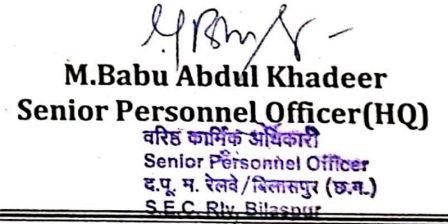 M.Babu Abdul Khadeer
Senior Personnel Officer(HQ)
वरिष्ठ कार्मिक अधिकारी
Senior Personnel Officer
द.पू. म. रेलवे/बिलासपुर (छ.ग.)
S.E.C. Rly, Bilaspur